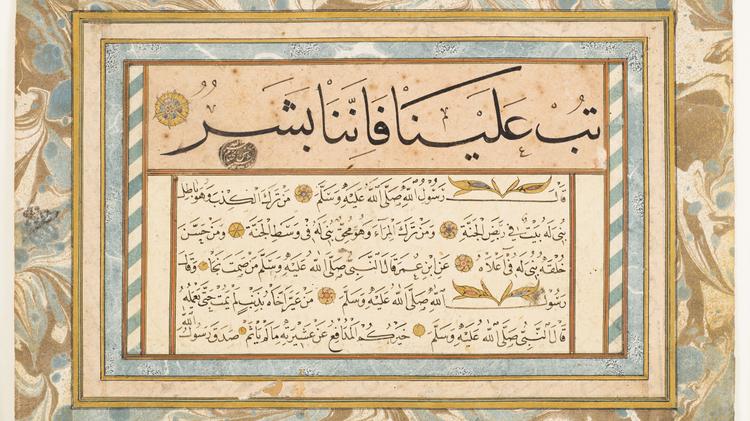 تُبْ عَلَيْنَا فَاِنَّنَا بَشَرُ
قال رسول الله صلى الله عليه وسلم من ترك الكذب وهو باطل
بنى له بيت فى ربض الجنة ومن ترك المراء وهو محق بنى له فى وسط الجنة ومن حسن
خلقه بنى له فى اعلاه عن ابن عمر قال النبى صلى الله عليه وسلم من صمت نجا وقال
رسول الله صلى الله عليه وسلم من عير اخاه بذنب لم يمت حتى يعمله
قال النبى صلى الله عليه وسلم خيركم المدافع عن عشيرته ما لم ياثم صدق رسول الله